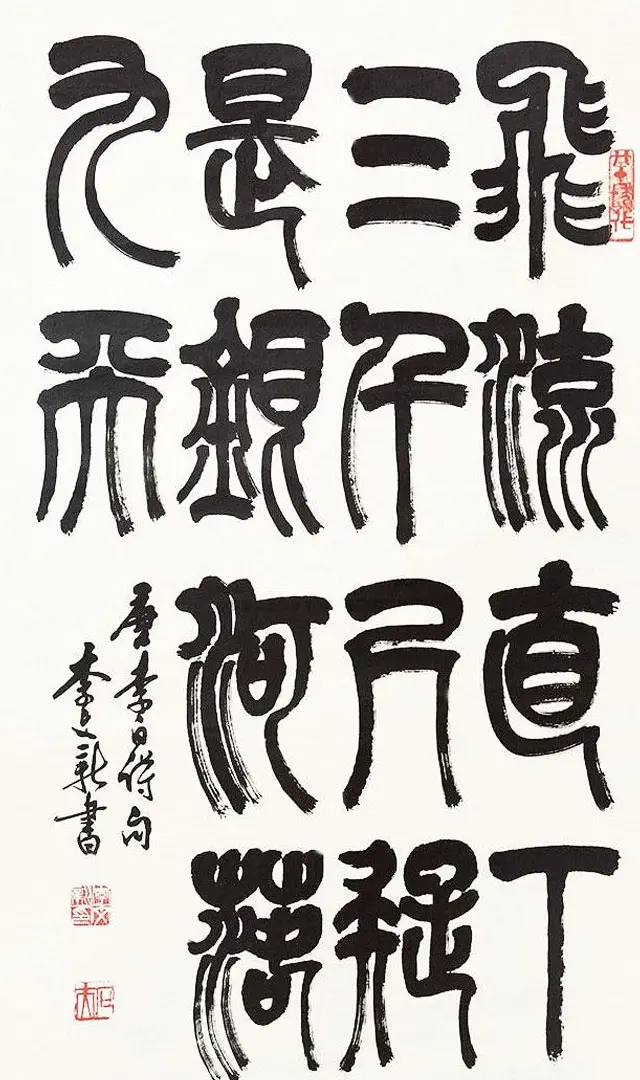 飛流直下
三千尺疑
是銀河落
九天
唐李白詩句
李文新書